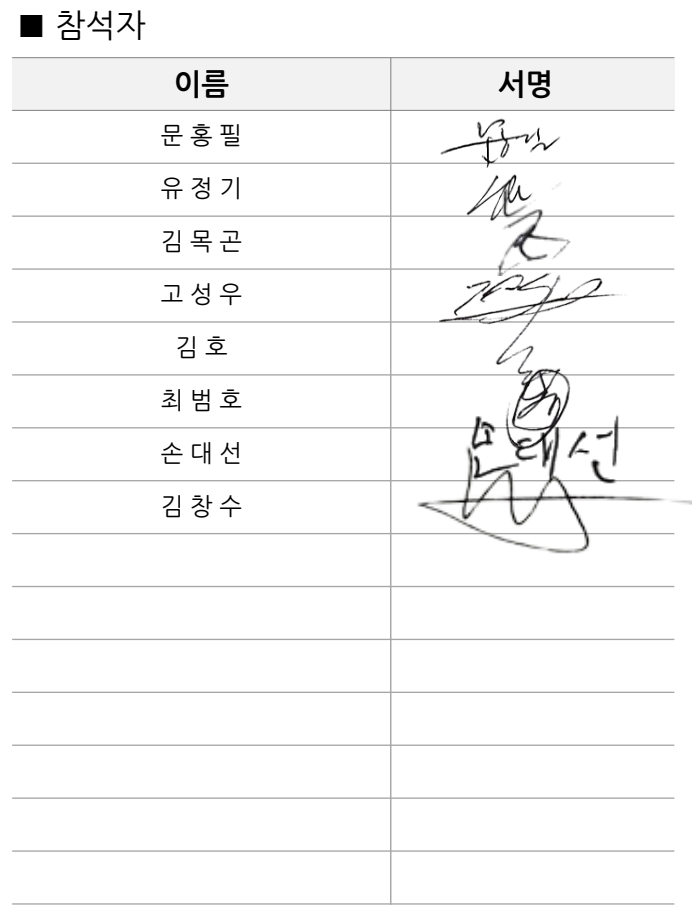 ■ 참석자
이름 서명
문홍필 문홍필
유정기
김목곤
고성우
김호
최범호
손대선 손대선
김창수